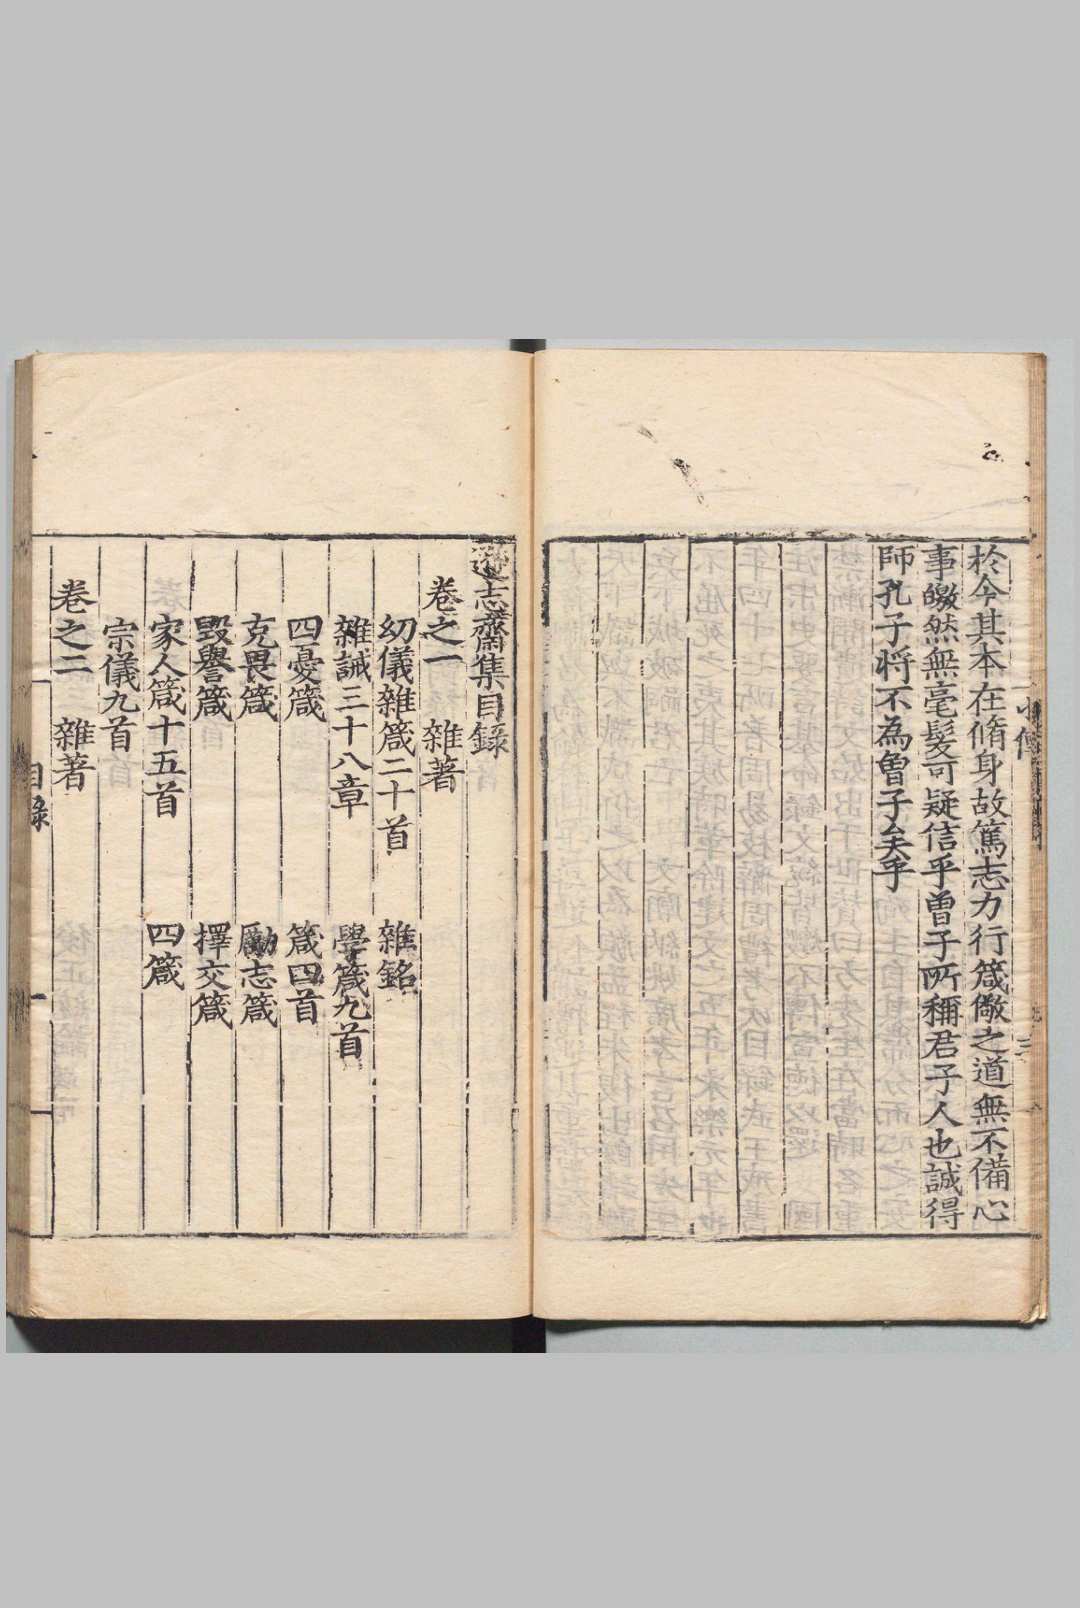 於今其本在脩身故篤志力行箴儆之道無不備心
事皦然無毫髮可疑信乎曾子所稱君子人也誠得
師孔子将不為魯子矣乎
遜志齋集目録
卷之一　雜著
幼儀雜箴二十首　雜銘
雜誡三十八章　學箴九首
四憂箴　箴四首
克畏箴　勵志箴
毀譽箴　擇交箴
家人箴十五首　四箴
宗儀九首
卷之二　雜著
目録　一